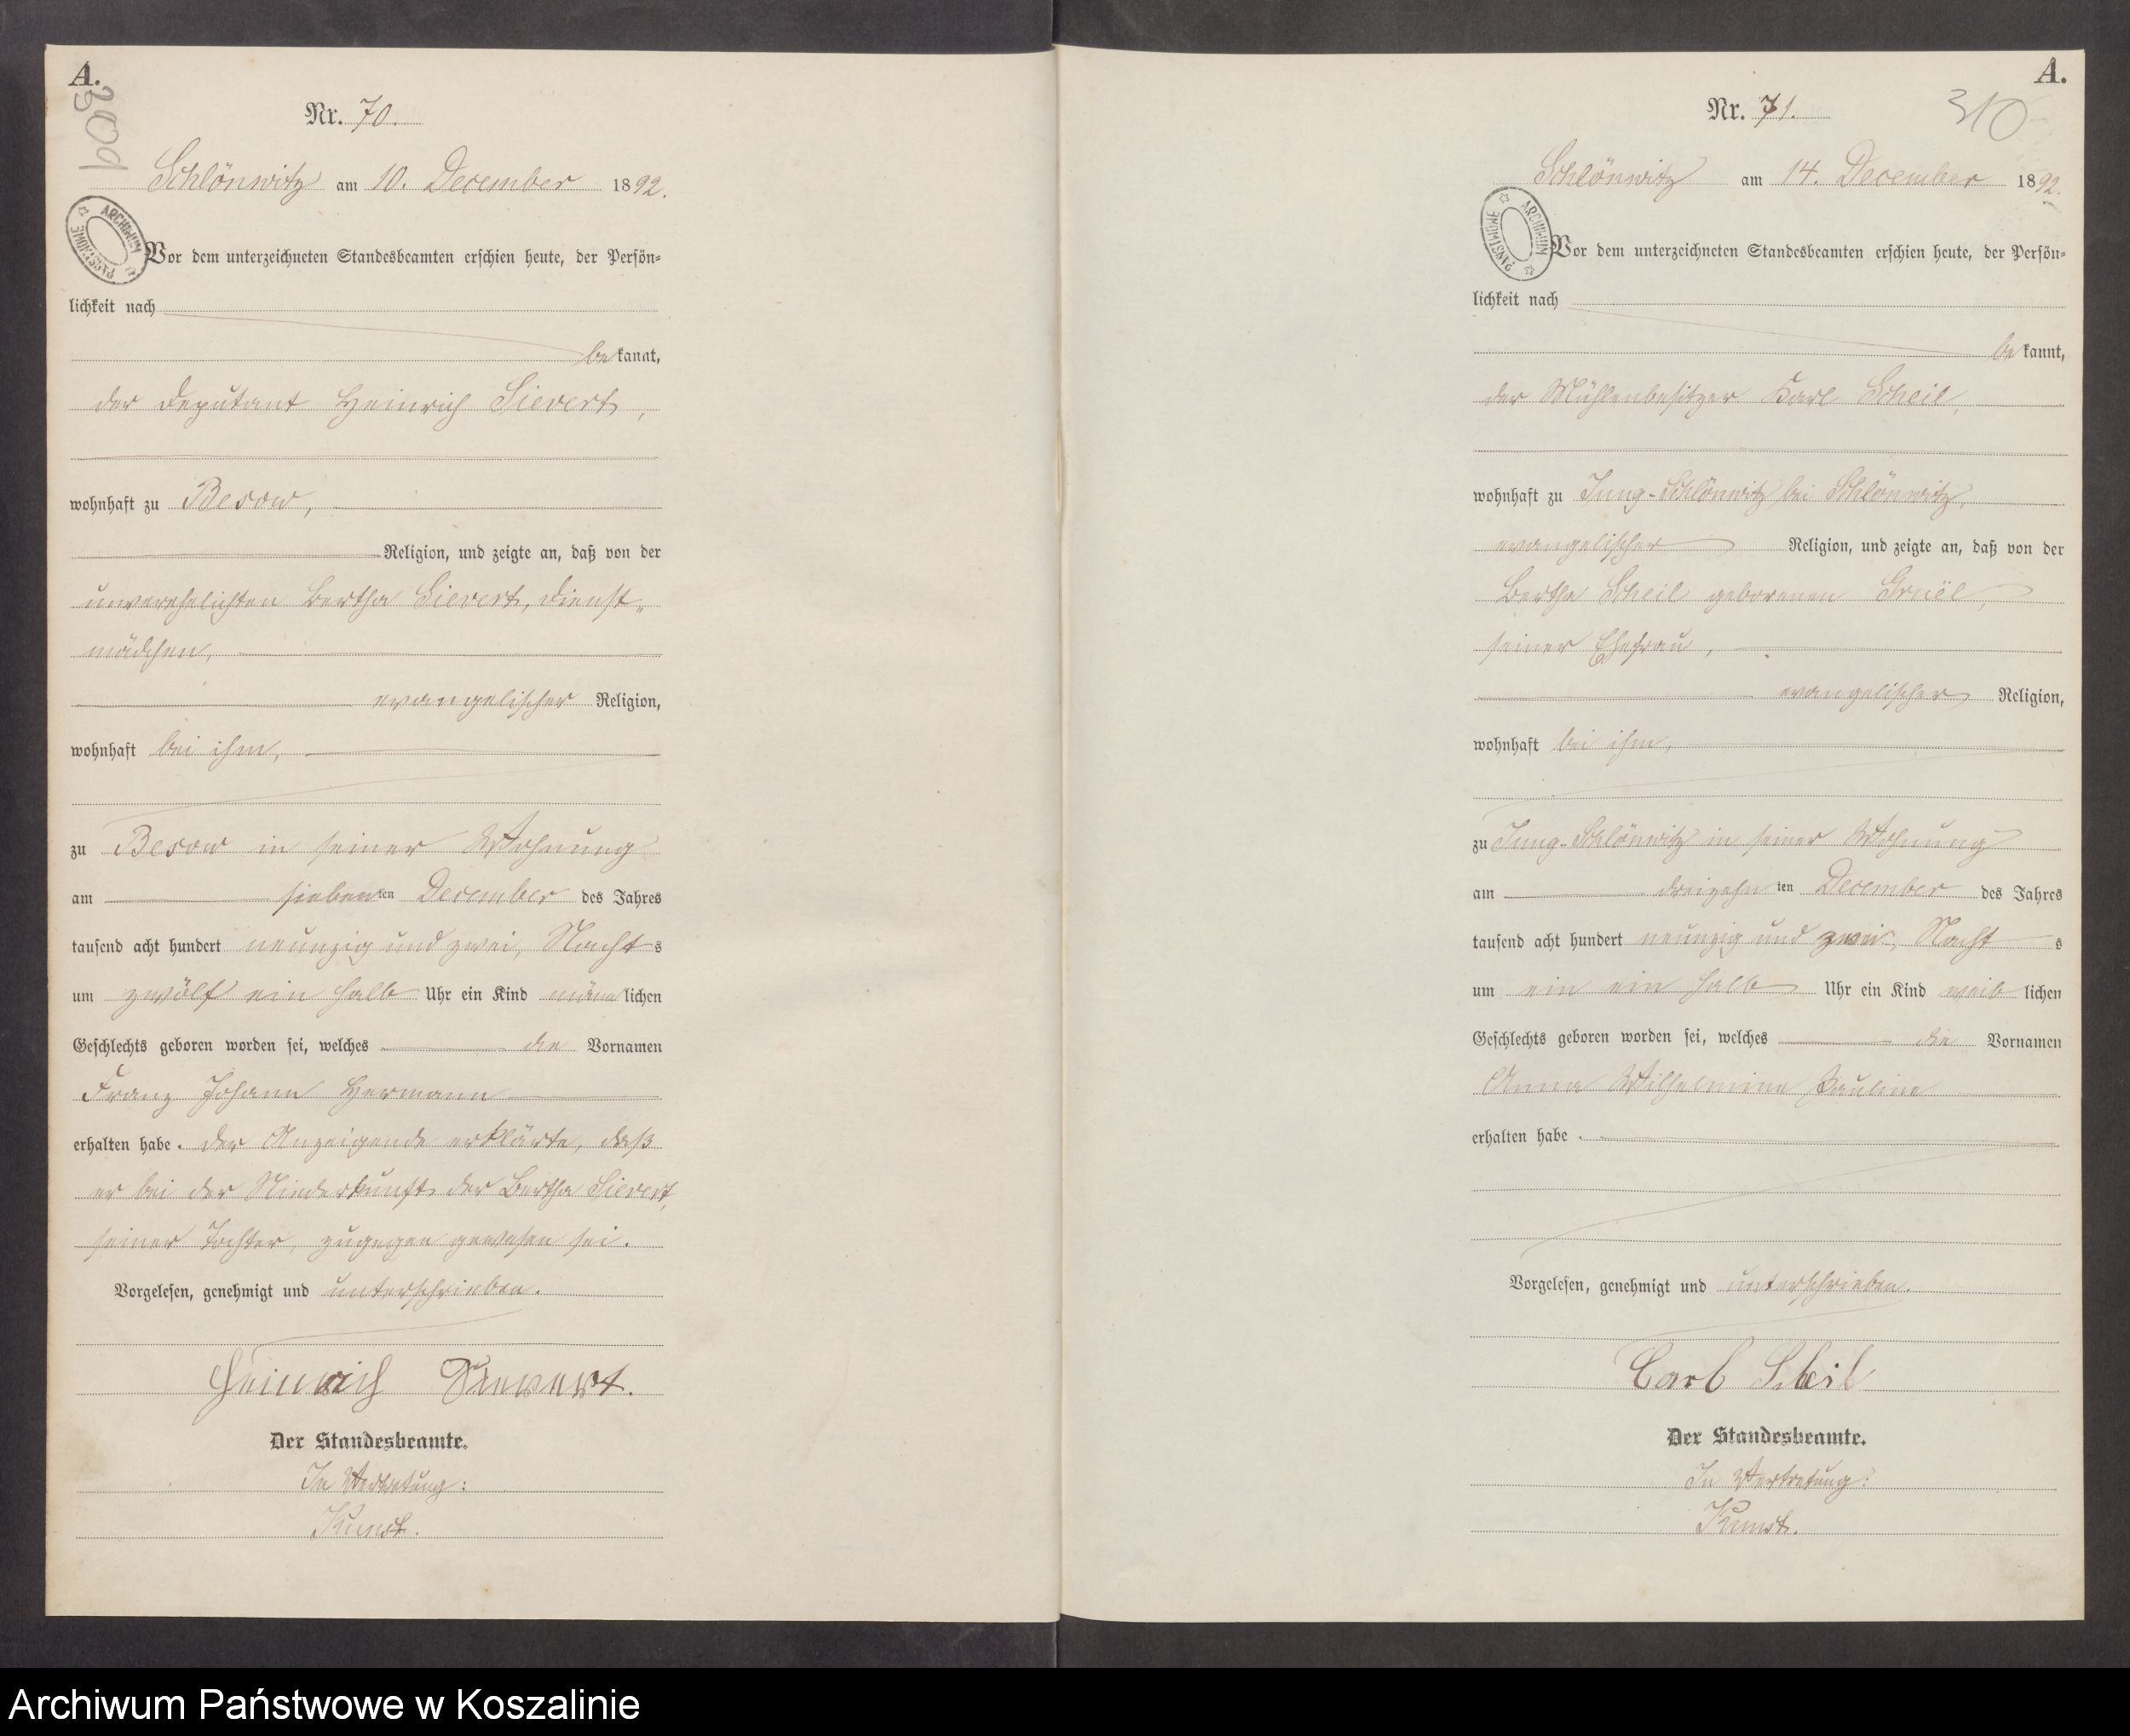 A.
309
Nr. 70.
Schlönwitz am 10. December 1892.
ARCHIWUM PAŃSTWOWE
Vor dem unterzeichneten Standesbeamten erschien heute, der Persön-
lichkeit nach
bekannt,
der Deputant Heinrich Sievert,
wohnhaft zu Besow,
Religion, und zeigte an, daß von der
unverehelichten Bertha Sievert, Dienst-
mädchen,
evangelischer Religion,
wohnhaft bei ihm,
zu Besow in seiner Wohnung
am siebenten December des Jahres
tausend acht hundert neunzig und zwei, Nachts
um zwölf ein halb Uhr ein Kind männlichen
Geschlechts geboren worden sei, welches die Vornamen
Franz Johann Hermann
erhalten habe. Der Anzeigende erklärte, daß
er bei der Niederkunft der Bertha Sievert,
seiner Tochter, zugegen gewesen sei.
Vorgelesen, genehmigt und unterschrieben.
Heinrich Siewert.
Der Standesbeamte.
In Vertretung:
Kunst.
A.
310
Nr. 71.
Schlönwitz am 14. December 1892.
ARCHIWUM PAŃSTWOWE
Vor dem unterzeichneten Standesbeamten erschien heute, der Persön-
lichkeit nach
bekannt,
der Mühlenbesitzer Karl Scheil,
wohnhaft zu Jung-Schlönwitz bei Schlönwitz,
evangelischer Religion, und zeigte an, daß von der
Bertha Scheil geborenen Gruël,
seiner Ehefrau,
evangelischer Religion,
wohnhaft bei ihm,
zu Jung-Schlönwitz in seiner Wohnung
am dreizehnten December des Jahres
tausend acht hundert neunzig und zwei, Nachts
um ein ein halb Uhr ein Kind weiblichen
Geschlechts geboren worden sei, welches die Vornamen
Anna Wilhelmine Pauline
erhalten habe.
Vorgelesen, genehmigt und unterschrieben.
Carl Scheil
Der Standesbeamte.
In Vertretung:
Kunst.
Archiwum Państwowe w Koszalinie